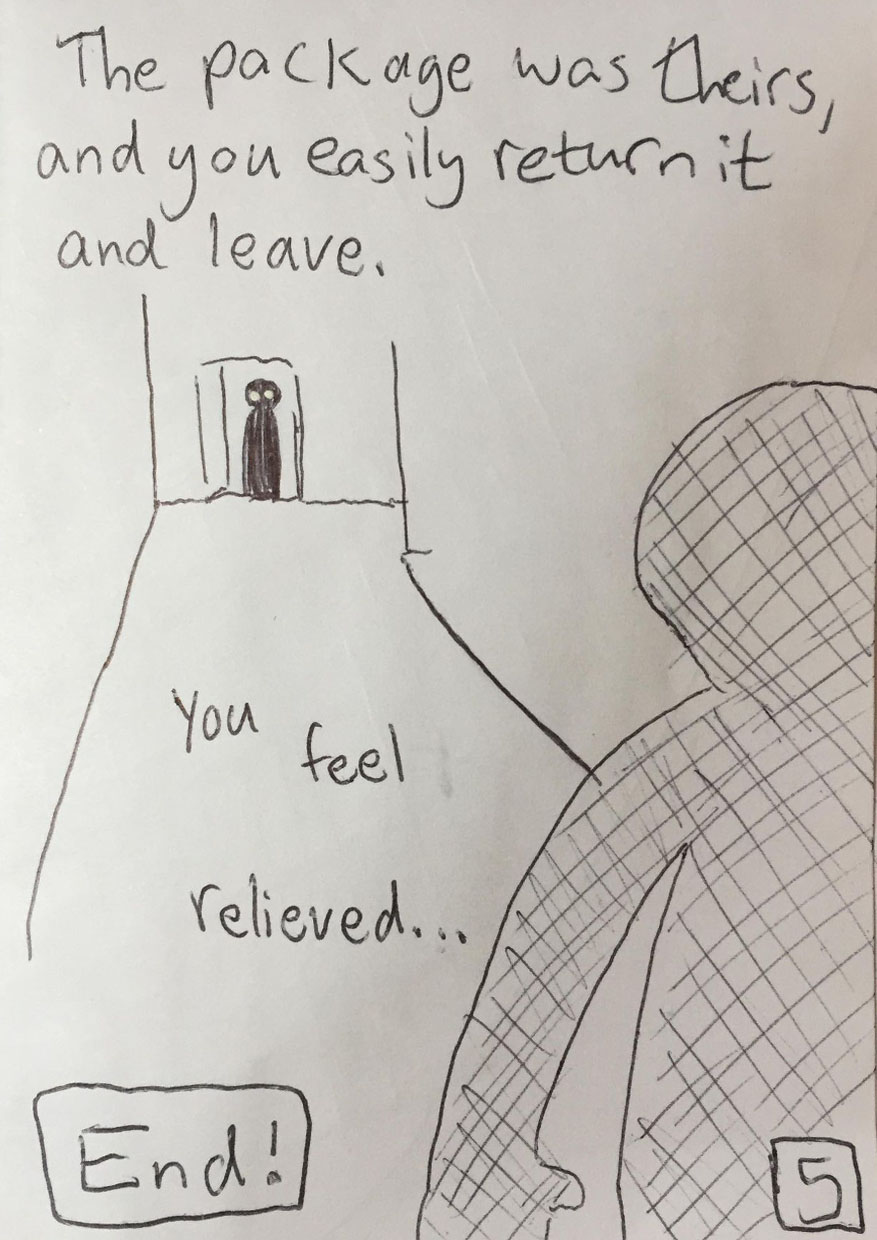 The package was theirs,
and you easily return it
and leave.
You
feel
relieved...
End!
5